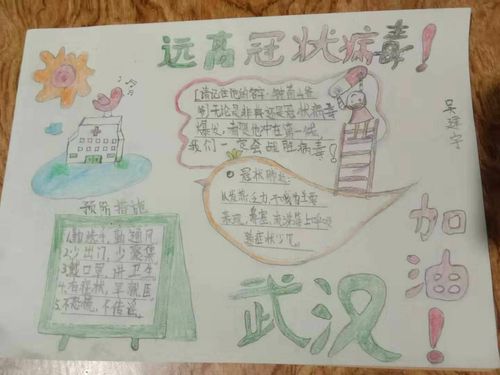 远离冠状病毒!
请记住他的名字:钟南山爷
爷,无论是非典还是冠状病毒
爆发,都是他冲在第一线,
我们一定会战胜病毒!
吴建宇
冠状肺炎:
以发热、乏力、干咳为主要
表现,鼻塞、流涕等上呼吸
预防措施
1.勤洗手,勤通风
2.少出门,少聚集
3.戴口罩,讲卫生
4.有症状,早就医
5.不恐慌,不传谣。
武汉
加油!